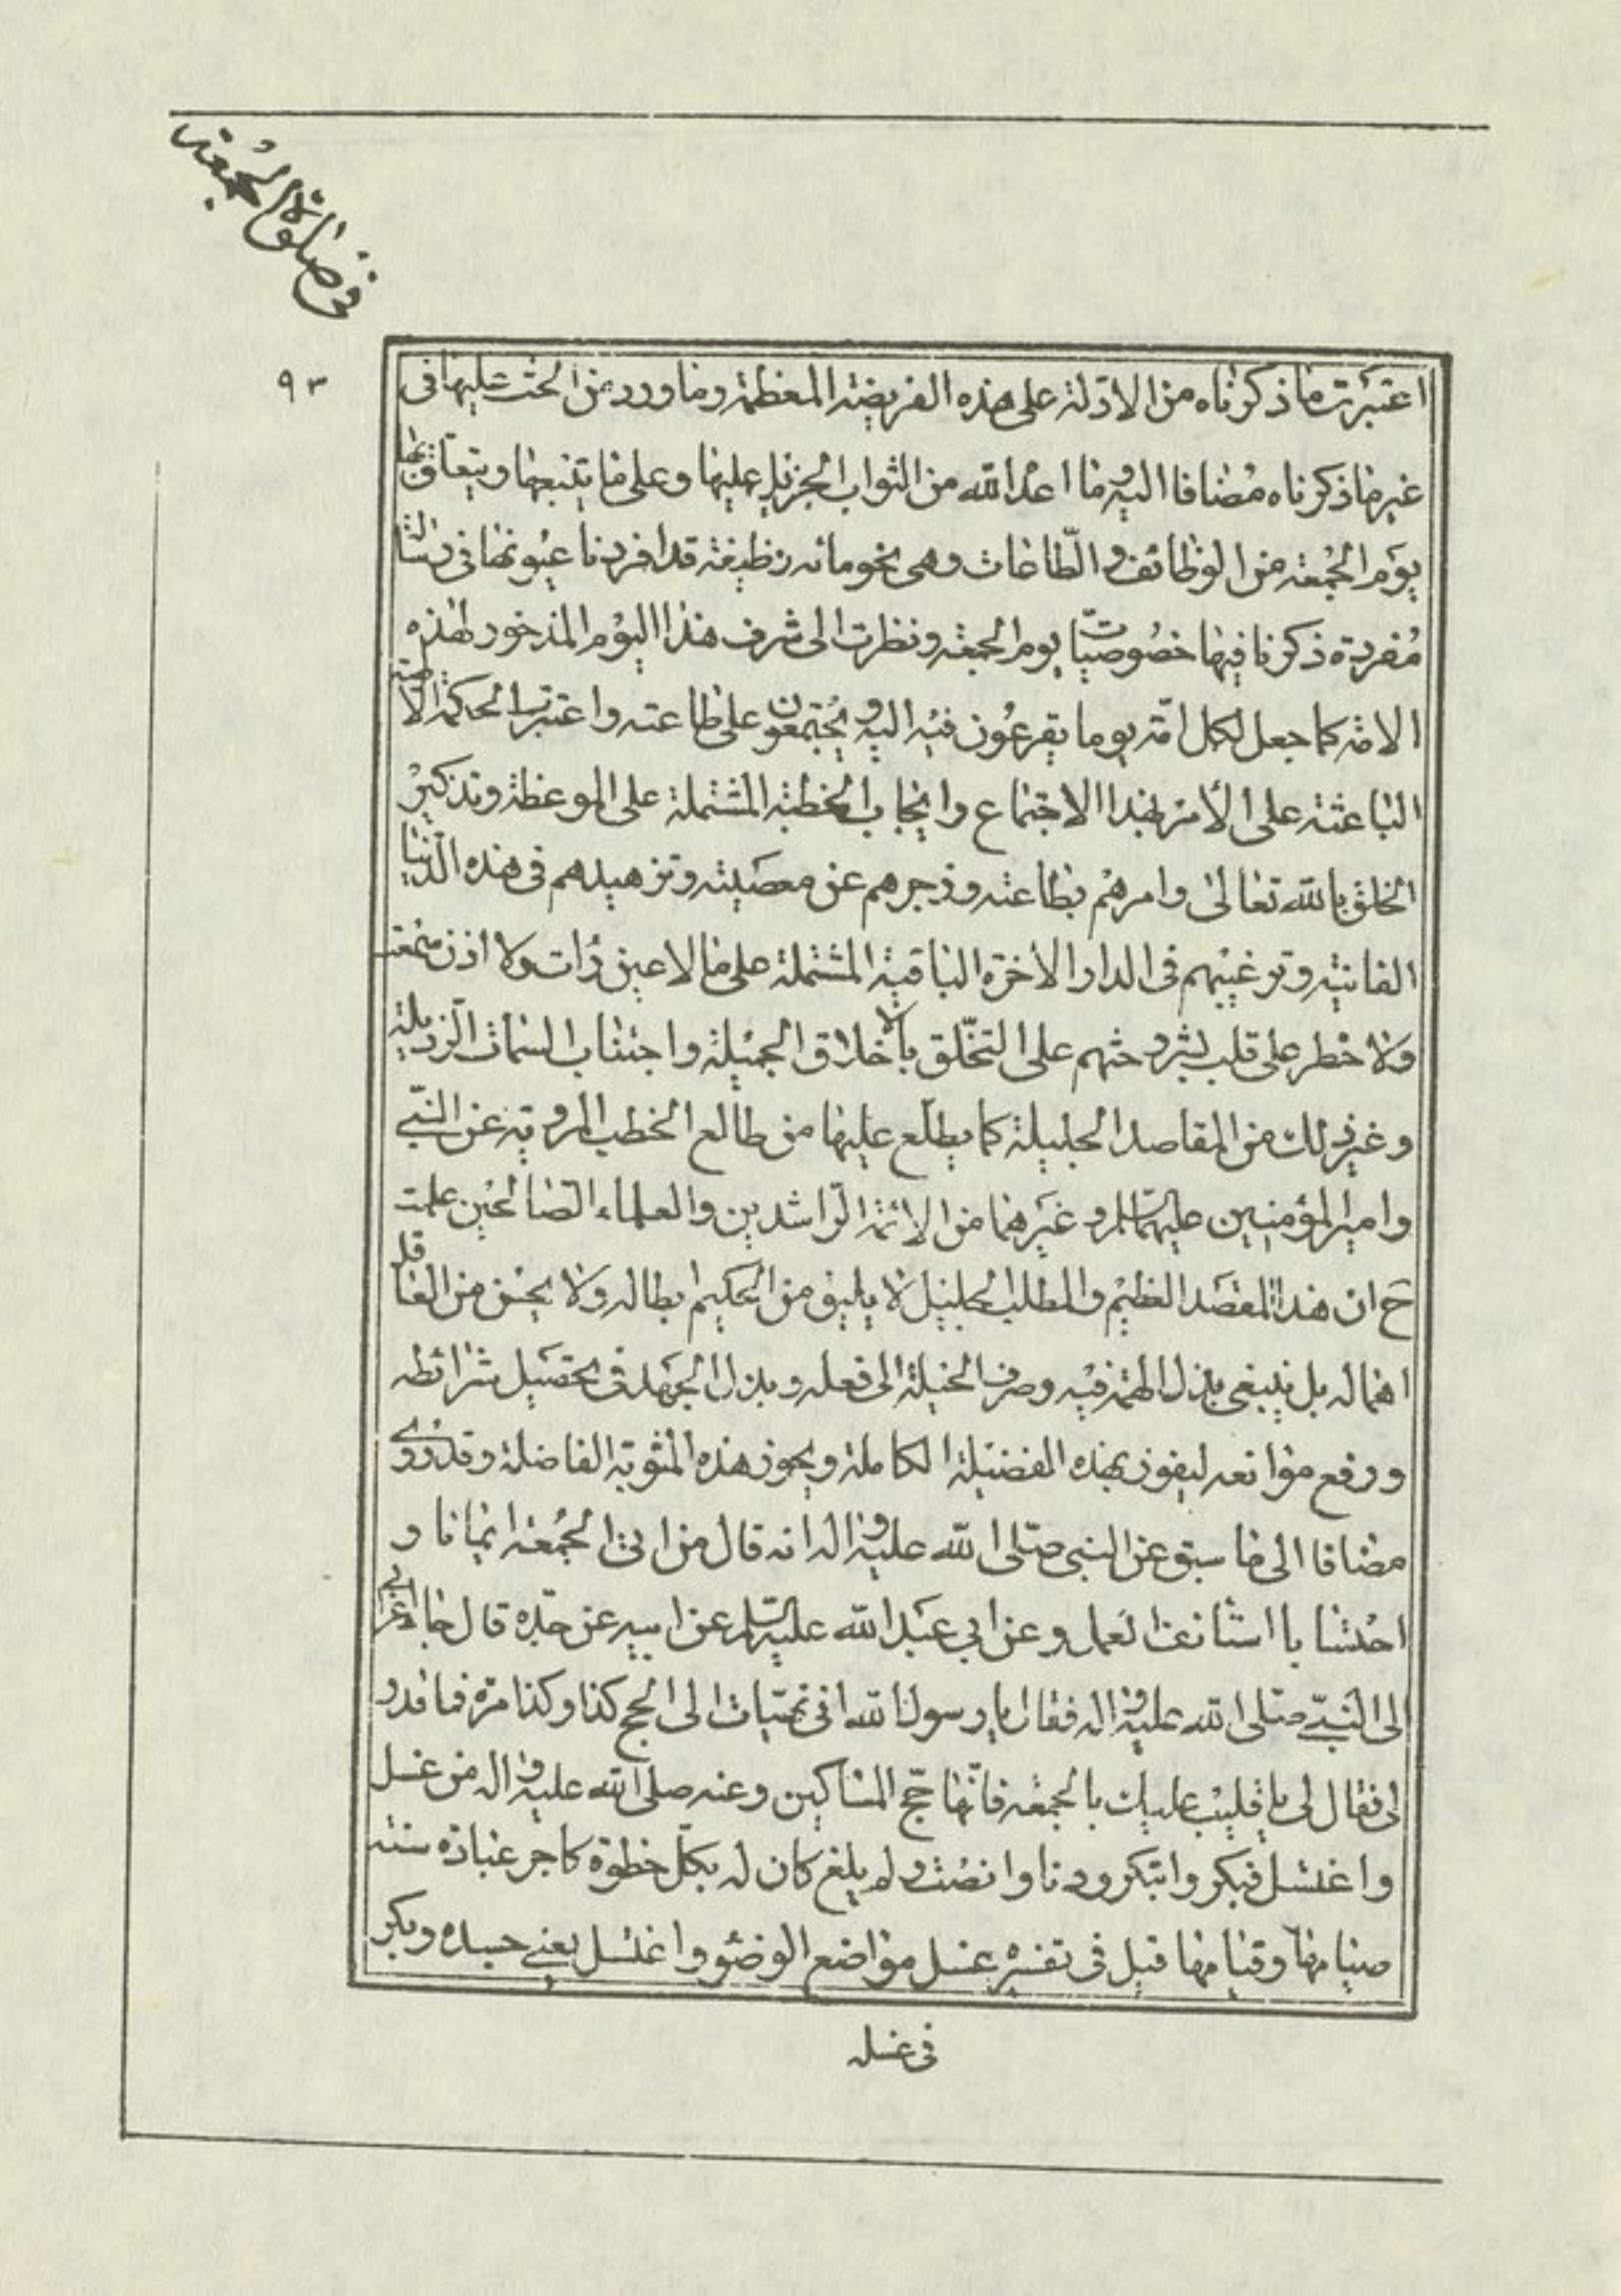 في صلوة الجمعة
٩٣
اعتبرت ما ذكرناه من الادلة على هذه الفريضة المعظمة وما ورد من الحث عليها في
غير ما ذكرناه مضافا اليه وما اعد الله من الثواب الجزيل عليها وعلى ما يتبعها ويتعلق بها
يوم الجمعة من الوظائف والطاعات وهى نحو مائه وظيفة قد افردنا عيونها فى رسالة
مفردة ذكرنا فيها خصوصيات يوم الجمعة ونظرت الى شرف هذا اليوم المذخور لهذه
الامة كما جعل لكل امة يوما يفرغون فيه اليه ويجتمعون على طاعته واعتبرت الحكمة الالهية
الباعثة على الأمر بهذا الاجتماع وايجاب الخطبة المشتملة على الموعظة وتذكير
الخلق بالله تعالى وامرهم بطاعته وزجرهم عن معصيته وتزهيدهم فى هذه الدنيا
الفانية وترغيبهم فى الدار الاخرة الباقية المشتملة على ما لا عين رات ولا اذن سمعت
ولا خطر على قلب بشر وحثهم على التخلق بالاخلاق الجميلة واجتناب السمات الرذيلة
وغير ذلك من المقاصد الجليلة كما يطلع عليها من طالع الخطب المروية عن النبي
وامير المؤمنين عليهما السلم وغيرهما من الائمة الراشدين والعلماء الصالحين علمت
ح ان هذا المقصد العظيم والمطلب الجليل لا يليق من الحكيم ابطاله ولا يحسن من العاقل
اهماله بل ينبغى بذل الهمة فيه وصرف الحيلة الى فعله وبذل الجهد فى تحصيل شرائطه
ورفع موانعه ليفوز بهذه الفضيلة الكاملة ويحوز هذه المثوبة الفاضلة وقد روى
مضافا الى ما سبق عن النبى صلى الله عليه واله انه قال من اتى الجمعة ايمانا و
احتسابا استانف العمل وعن ابي عبد الله عليه السلم عن ابيه عن جده قال جاء اعرابى
الى النبي صلى الله عليه واله فقال يا رسول الله انى تهيات الى الحج كذا وكذا مرة فما قدر
لى فقال لى يا قليب عليك بالجمعة فانها حج المساكين وعنه صلى الله عليه واله من غسل
واغتسل فبكر وابتكر ودنا وانصت ولم يلغ كان له بكل خطوة كاجر عبادة سنة
صيامها وقيامها قيل فى تفسيره غسل مواضع الوضوء واغتسل يعني جسده وبكر
فى غسله